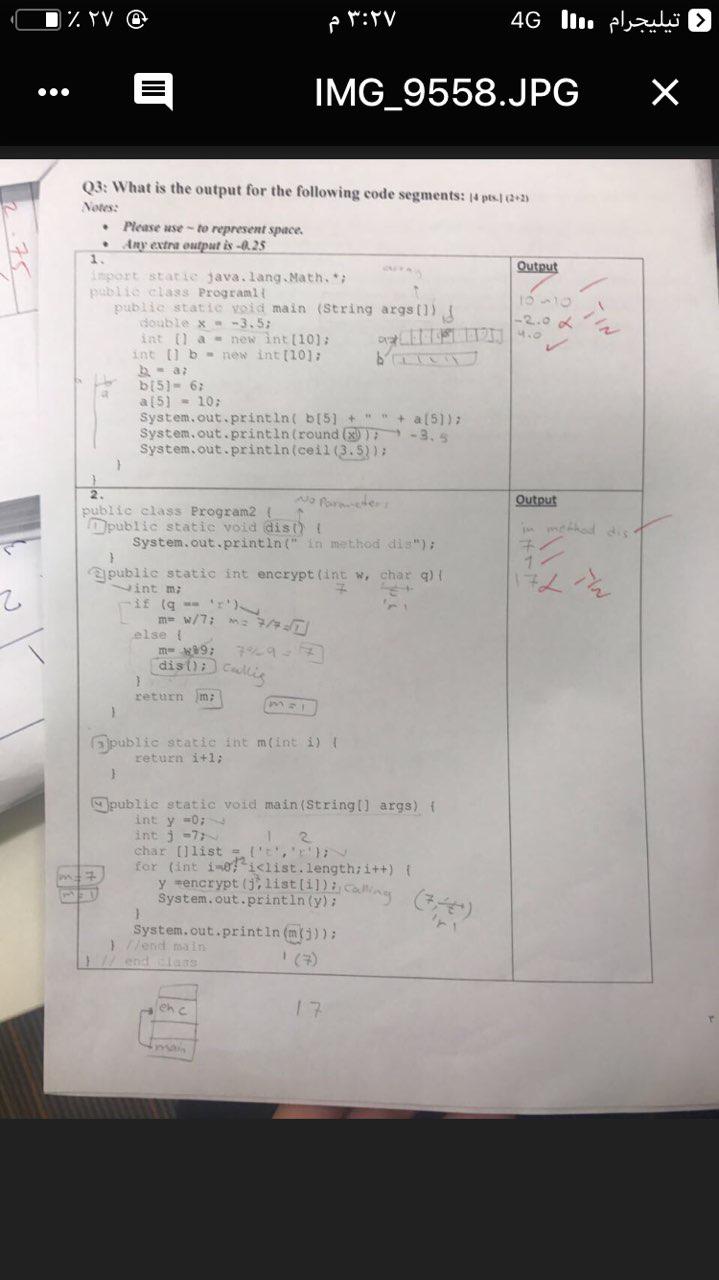 ٪ ٢٧
٣:٢٧ م
4G
تيليجرام
IMG_9558.JPG
2.75
Q3: What is the output for the following code segments: [4 pts.] (2+2)
Notes:
• Please use ~ to represent space.
• Any extra output is -0.25
1.
import static java.lang.Math.*;
public class Program1{
public static void main (String args[]) {
double x = -3.5;
int [] a = new int[10];
int [] b = new int[10];
b = a;
b[5]= 6;
a[5] = 10;
System.out.println( b[5] + " " + a[5]);
System.out.println(round(x)); → -3.5
System.out.println(ceil(3.5));
}
}
array
a
b
b
a
Output
10~10
-2.0
4.0
-1/2
2.
No Parameters
public class Program2 {
1 public static void dis() {
System.out.println(" in method dis");
}
2 public static int encrypt(int w, char q){
7
'r'
int m;
if (q == 'r')
m= w/7; m= 7/7=1
else {
m= w%9; 7%9 = 7
dis(); Callig
}
return m;
m=1
}
3 public static int m(int i) {
return i+1;
}
4 public static void main(String[] args) {
int y =0;
int j =7;
1 2
char []list = {'t','r'};
for (int i=0; i<list.length;i++) {
y =encrypt(j, list[i]); Calling
System.out.println(y);
}
System.out.println(m(j));
} //end main
} // end class
m=7
m=1
'r'
(7)
Output
in method dis
7
1
17
-1/2
enc
main
17
٣